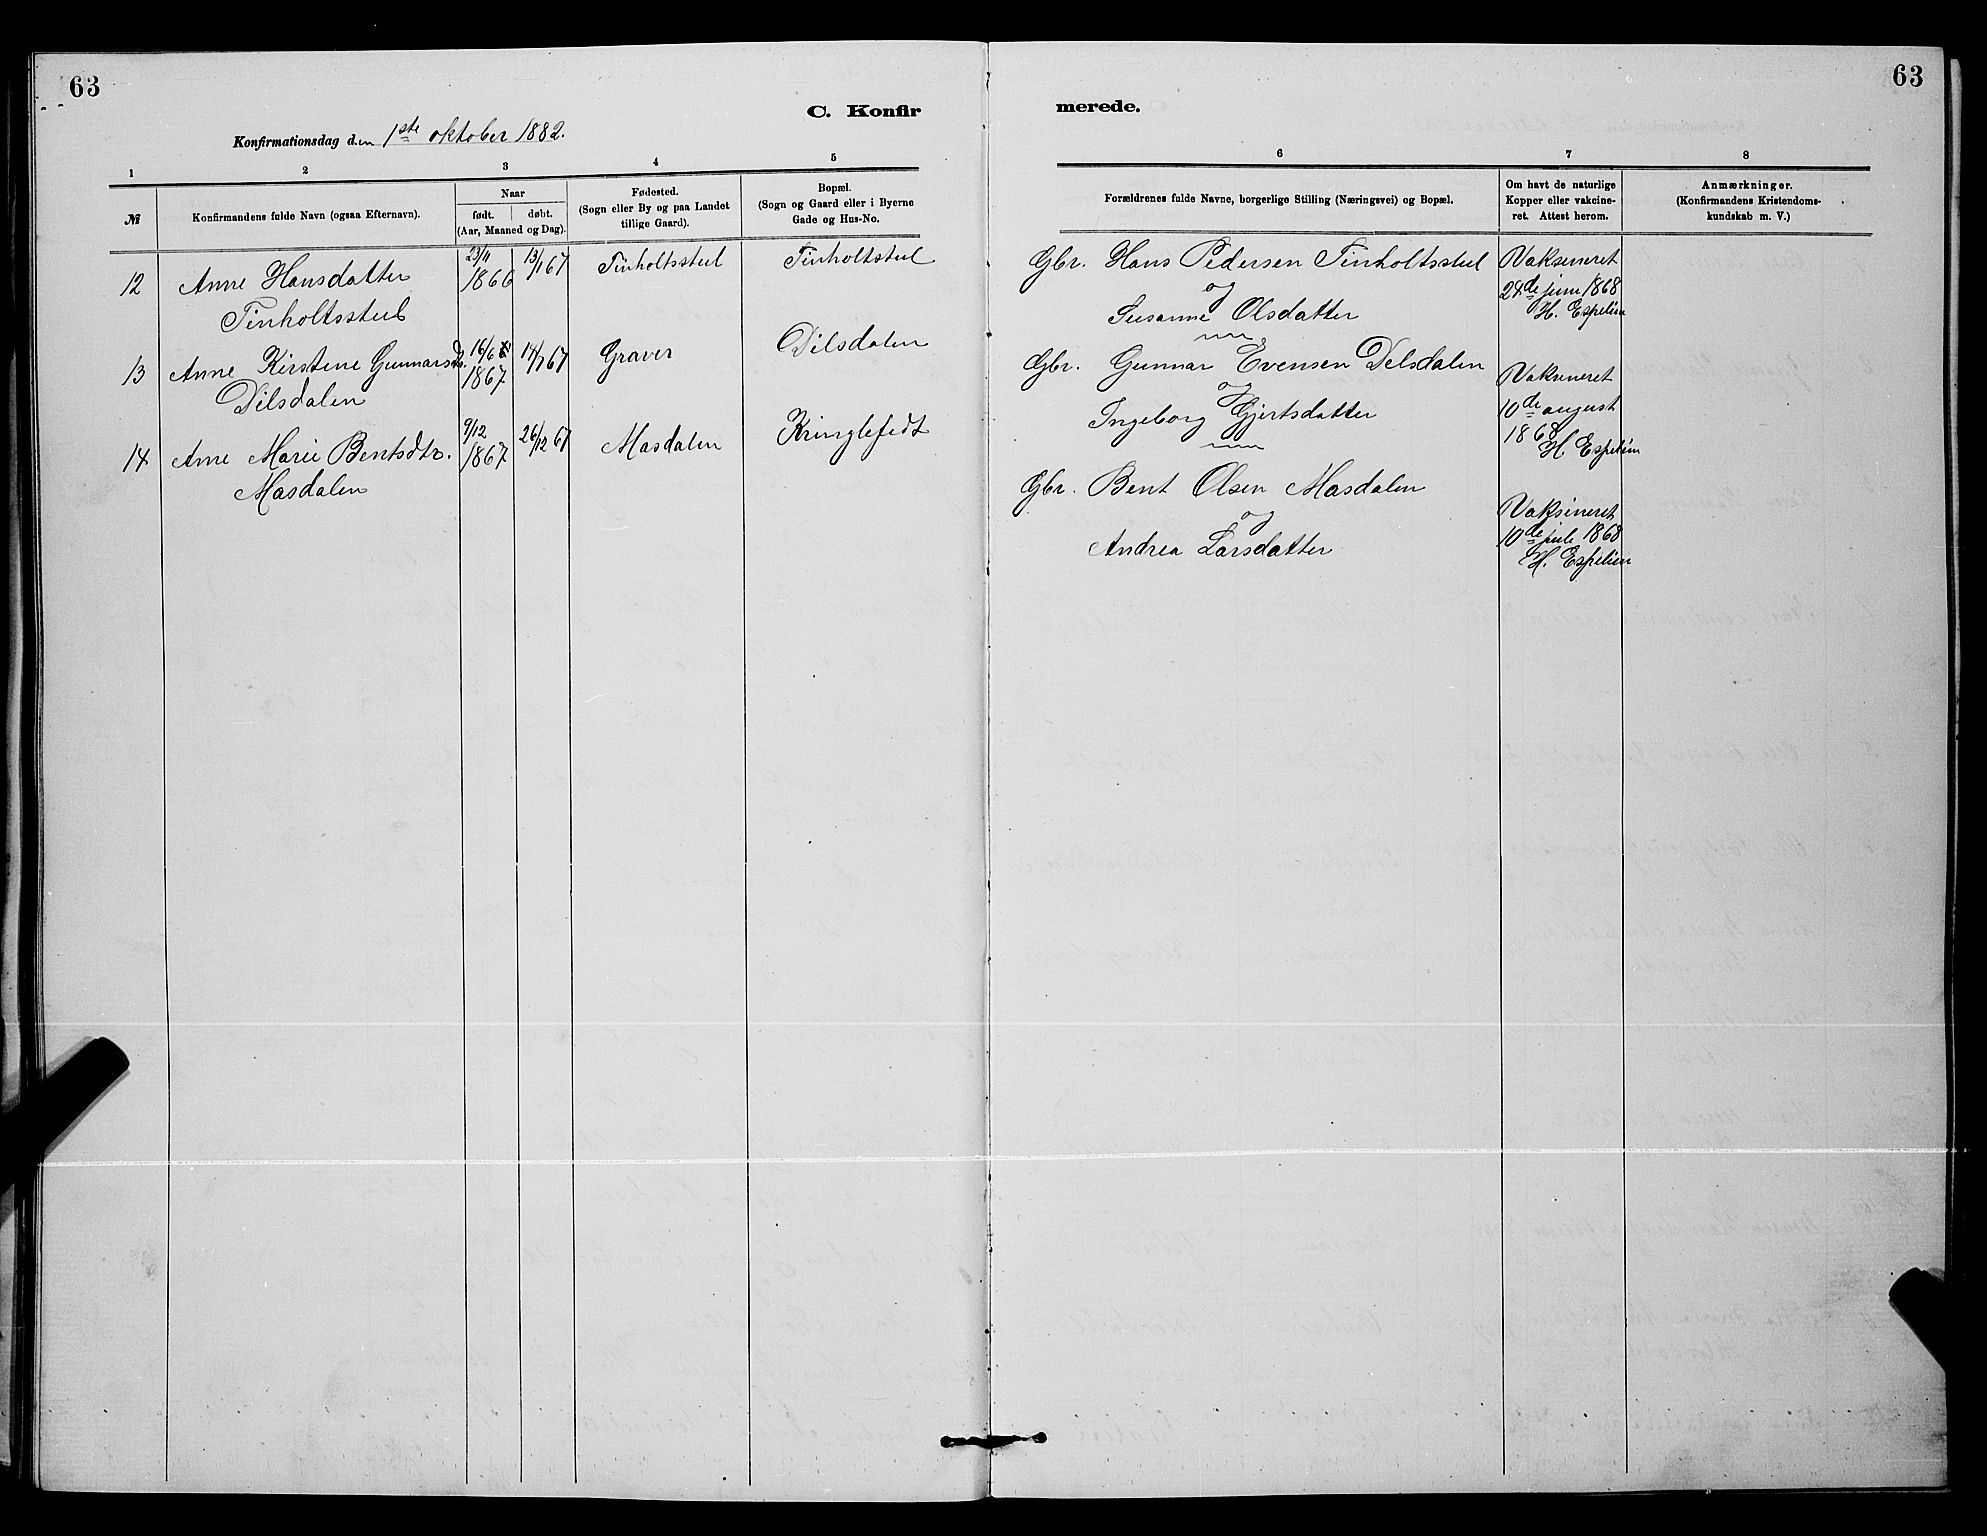 63
63
C. Konfir
merede.
Konfirmationsdag den 1ste oktober 1882.
1
2
3
4
5
6
7
8
№
Konfirmandens fulde Navn (ogsaa Efternavn).
Naar
født.
døbt.
(Aar, Maaned og Dag).
Fødested.
(Sogn eller By og paa Landet
tillige Gaard).
Bopæl.
(Sogn og Gaard eller i Byerne
Gade og Hus-No.
Forældrenes fulde Navne, borgerlige Stilling (Næringsvei) og Bopæl.
Om havt de naturlige
Kopper eller vakcine-
ret. Attest herom.
Anmærkninger.
(Konfirmandens Kristendoms-
kundskab m. V.)
12
Anne Hansdatter
Tinholtsstul
23/11
1866
13/1 67
Tinholtsstul
Tinholtstul
Gbr. Hans Pedersen Tinholtsstul
og
Susanne Olsdatter
Vaksineret
24de juni 1868
H. Espelien
13
Anne Kirstene Gunnarsd.
Dilsdalen
16/6
1867
14/7 67
Graver
Dilsdalen
Gbr. Gunnar Evensen Delsdalen
og
Ingeborg Gjertsdatter
Vaksineret
10de august
1868
H. Espelien
14
Anne Marie Bentsdtr.
Masdalen
9/12
1867
26/12 67
Masdalen
Kringlefedt
Gbr. Bent Olsen Masdalen
og
Andrea Larsdatter
Vaksineret
10de juli 1868
H. Espelien